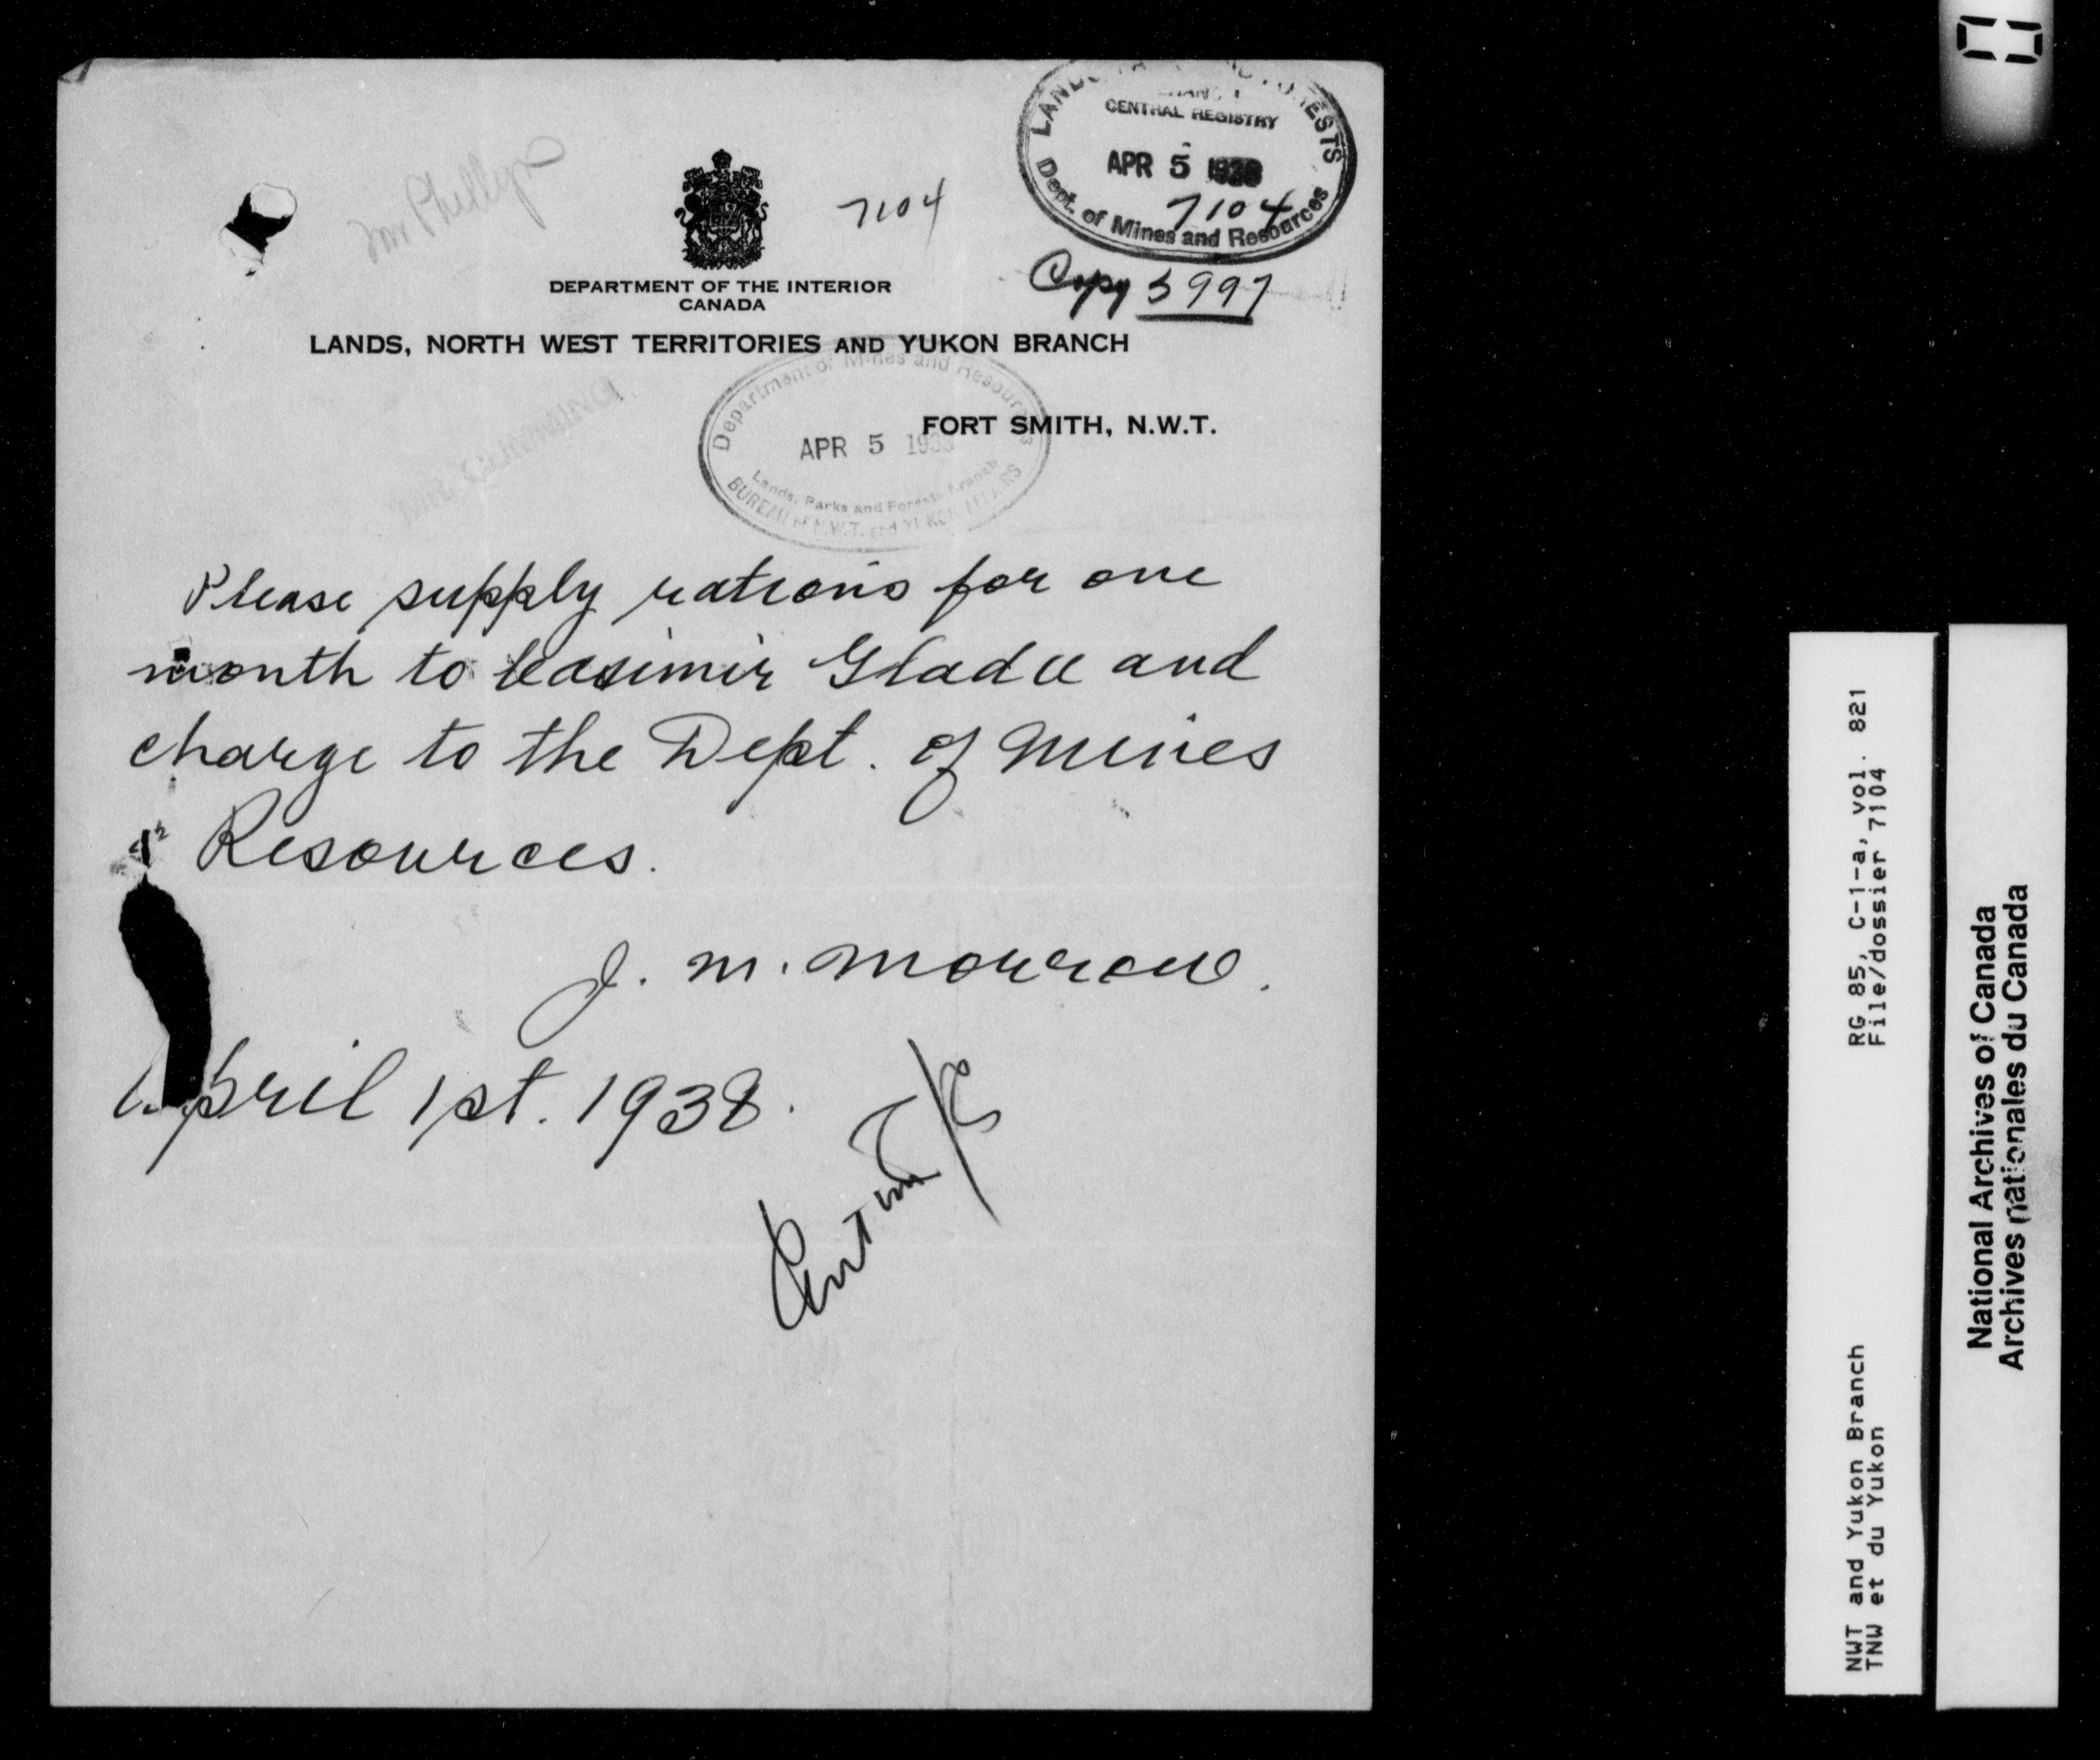 LANDS FORESTS
CENTRAL REGISTRY
APR 5 1938
7104
Dept. of Mines and Resources
Mr Phillips
7104
Copy 5997
DEPARTMENT OF THE INTERIOR
CANADA
LANDS, NORTH WEST TERRITORIES AND YUKON BRANCH
FORT SMITH, N.W.T.
Department of Mines and Resources
APR 5 1938
Lands, Parks and Forests Branch
BUREAU of N.W.T. and YUKON AFFAIRS
Please supply rations for one
month to Casimir Gladu and
charge to the Dept. of Mines
& Resources.
J. M. Morrow.
April 1st. 1938.
RG 85, C-1-a, vol. 821
File/dossier 7104
NWT and Yukon Branch
TNW et du Yukon
National Archives of Canada
Archives nationales du Canada